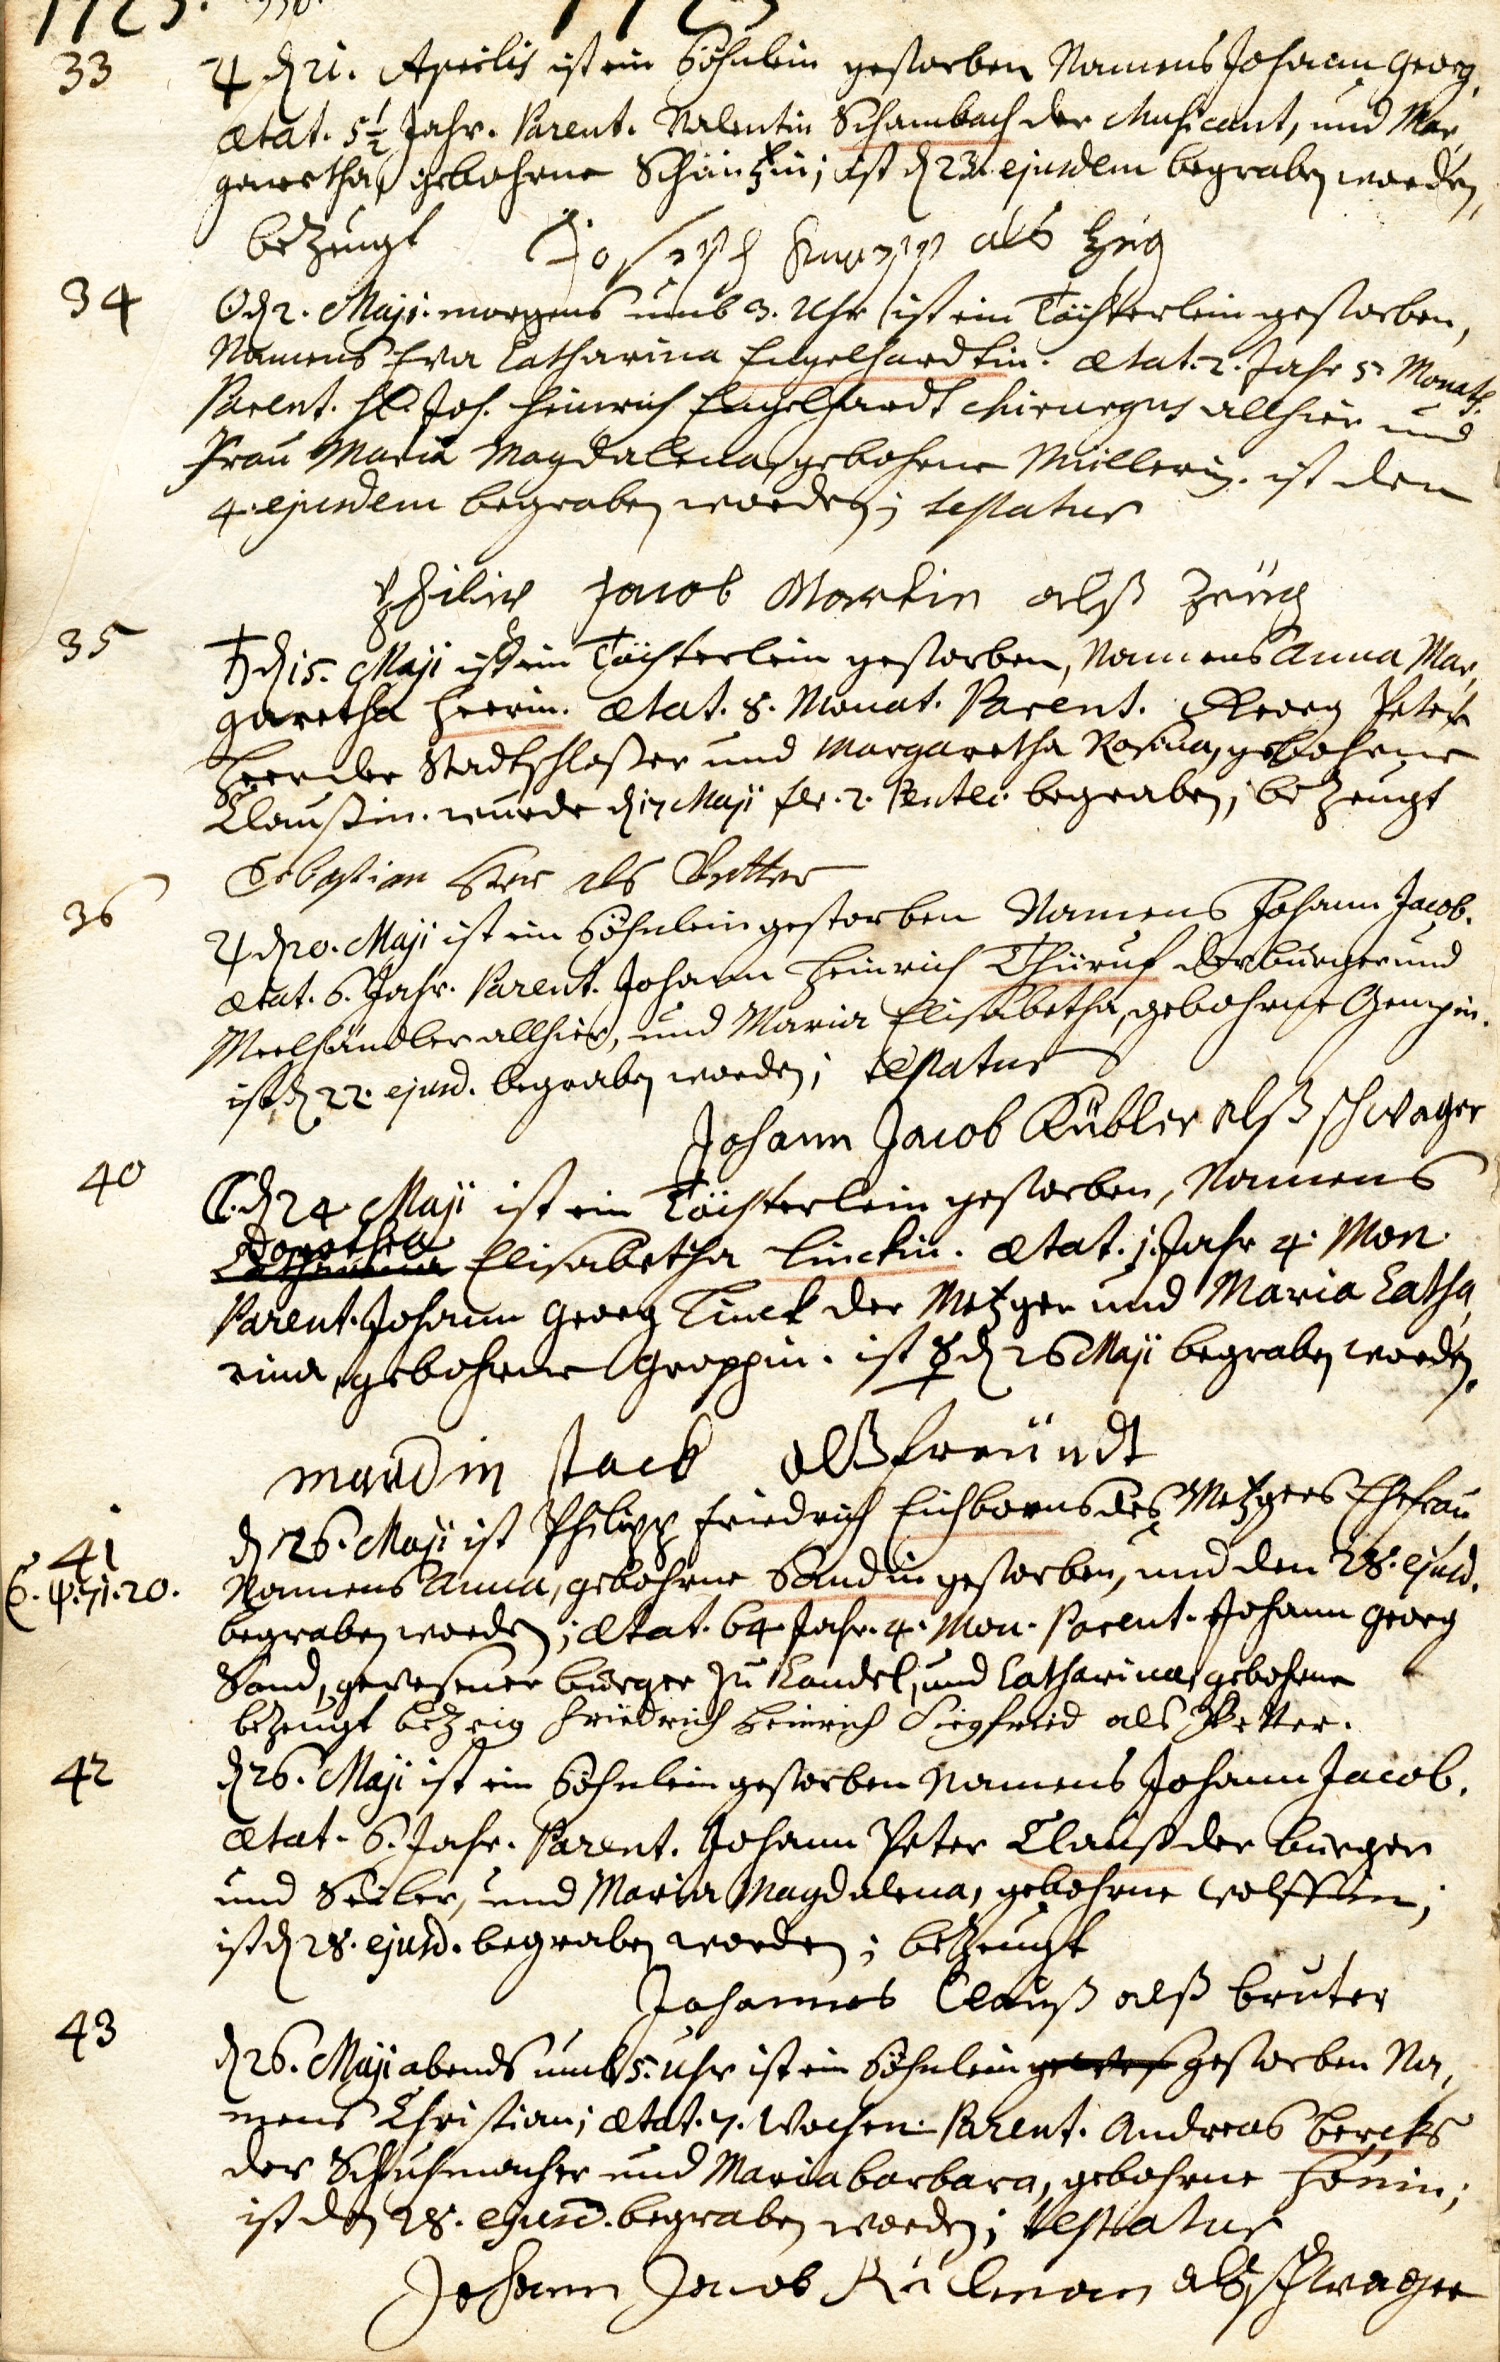 33
♃ d 21. Aprilis ist ein Söhnlein gestorben Namens Johann Georg,
ætat. 5½ Jahr. Parent. Valentin Schambach der Musicant, und Mar,
garetha, gebohrne; ist d 23. ejusdem begraben worden,
bezeugt
Joseph als Zeig
34
☉ d 2. Maji. morgens umb 3. Uhr ist ein Töchterlein gestorben,
Namens Eva Catharina Engelhardtin. ætat. 2. Jahr 5 Monath.
Parent. H. Joh. Heinrich Engelhardt Chirurgus allhier und
Frau Maria Magdalena, gebohrne Müllerin. ist den
4. ejusdem begraben worden; testatur
Philip Jacob Martin alß Zeüg
35
♄ d 15. Maji ist ein Töchterlein gestorben, Namens Anna Mar,
garetha Heerin. ætat. 8. Monat. Parent. Georg Peter
Heer der Stadtschloßer und Margaretha Rosina, gebohrne
Claußin. wurde d 17 Maji fer. 2. Pentec. begraben; bezeugt
Sebastian Heer als Vetter
36
♃ d 20. Maji ist ein Söhnlein gestorben Namens Johann Jacob.
ætat. 6. Jahr. Parent. Johann Heinrich Thüruf der burger und
Meelhändler allhier, und Maria Elisabetha, gebohrne Gempin.
ist d 22. ejusd. begraben worden; testatur
Johann Jacob Kübler alß schwager
40
☾ d 24 Maji ist ein Töchterlein gestorben, Namens
Dorothea
Catharina Elisabetha Linckin. ætat. 1. Jahr 4. Mon.
Parent. Johann Georg Linck der Metzger und Maria Catha,
rina, gebohrne Groppin. ist ☿ d 26 Maji begraben worden.
mardin stack alß freündt
41
C. ψ. 71. 20.
d 26. Maji ist Philipp Friedrich Eichborns des Metzgers Ehefrau
Namens Anna, gebohrne Sandin gestorben, und den 28. ejusd.
begraben worden; ætat. 64. Jahr. 4. Mon. Parent. Johann Georg
Sand, gewesener burger zu Landel, und Catharina, gebohrne
bezeugt Friedrich Heinrich Siegfried als Vetter.
42
d 26. Maji ist ein Söhnlein gestorben Namens Johann Jacob.
ætat. 6. Jahr. Parent. Johann Peter Clauß der burger
und Seiler, und Maria Magdalena, gebohrne Wolffin;
ist d 28. ejusd. begraben worden; bezeugt
Johannes Clauß alß bruter
43
d 26. Maji abends umb 5. Uhr ist ein Söhnlein gestorben Na,
mens Christian; ætat. 7. Wochen. Parent. Andreas Bercks
der Schuhmacher und Maria barbara, gebohrne Hönin;
ist den 28. ejusd. begraben worden; testatur
Johann Jacob Külman alß schwager